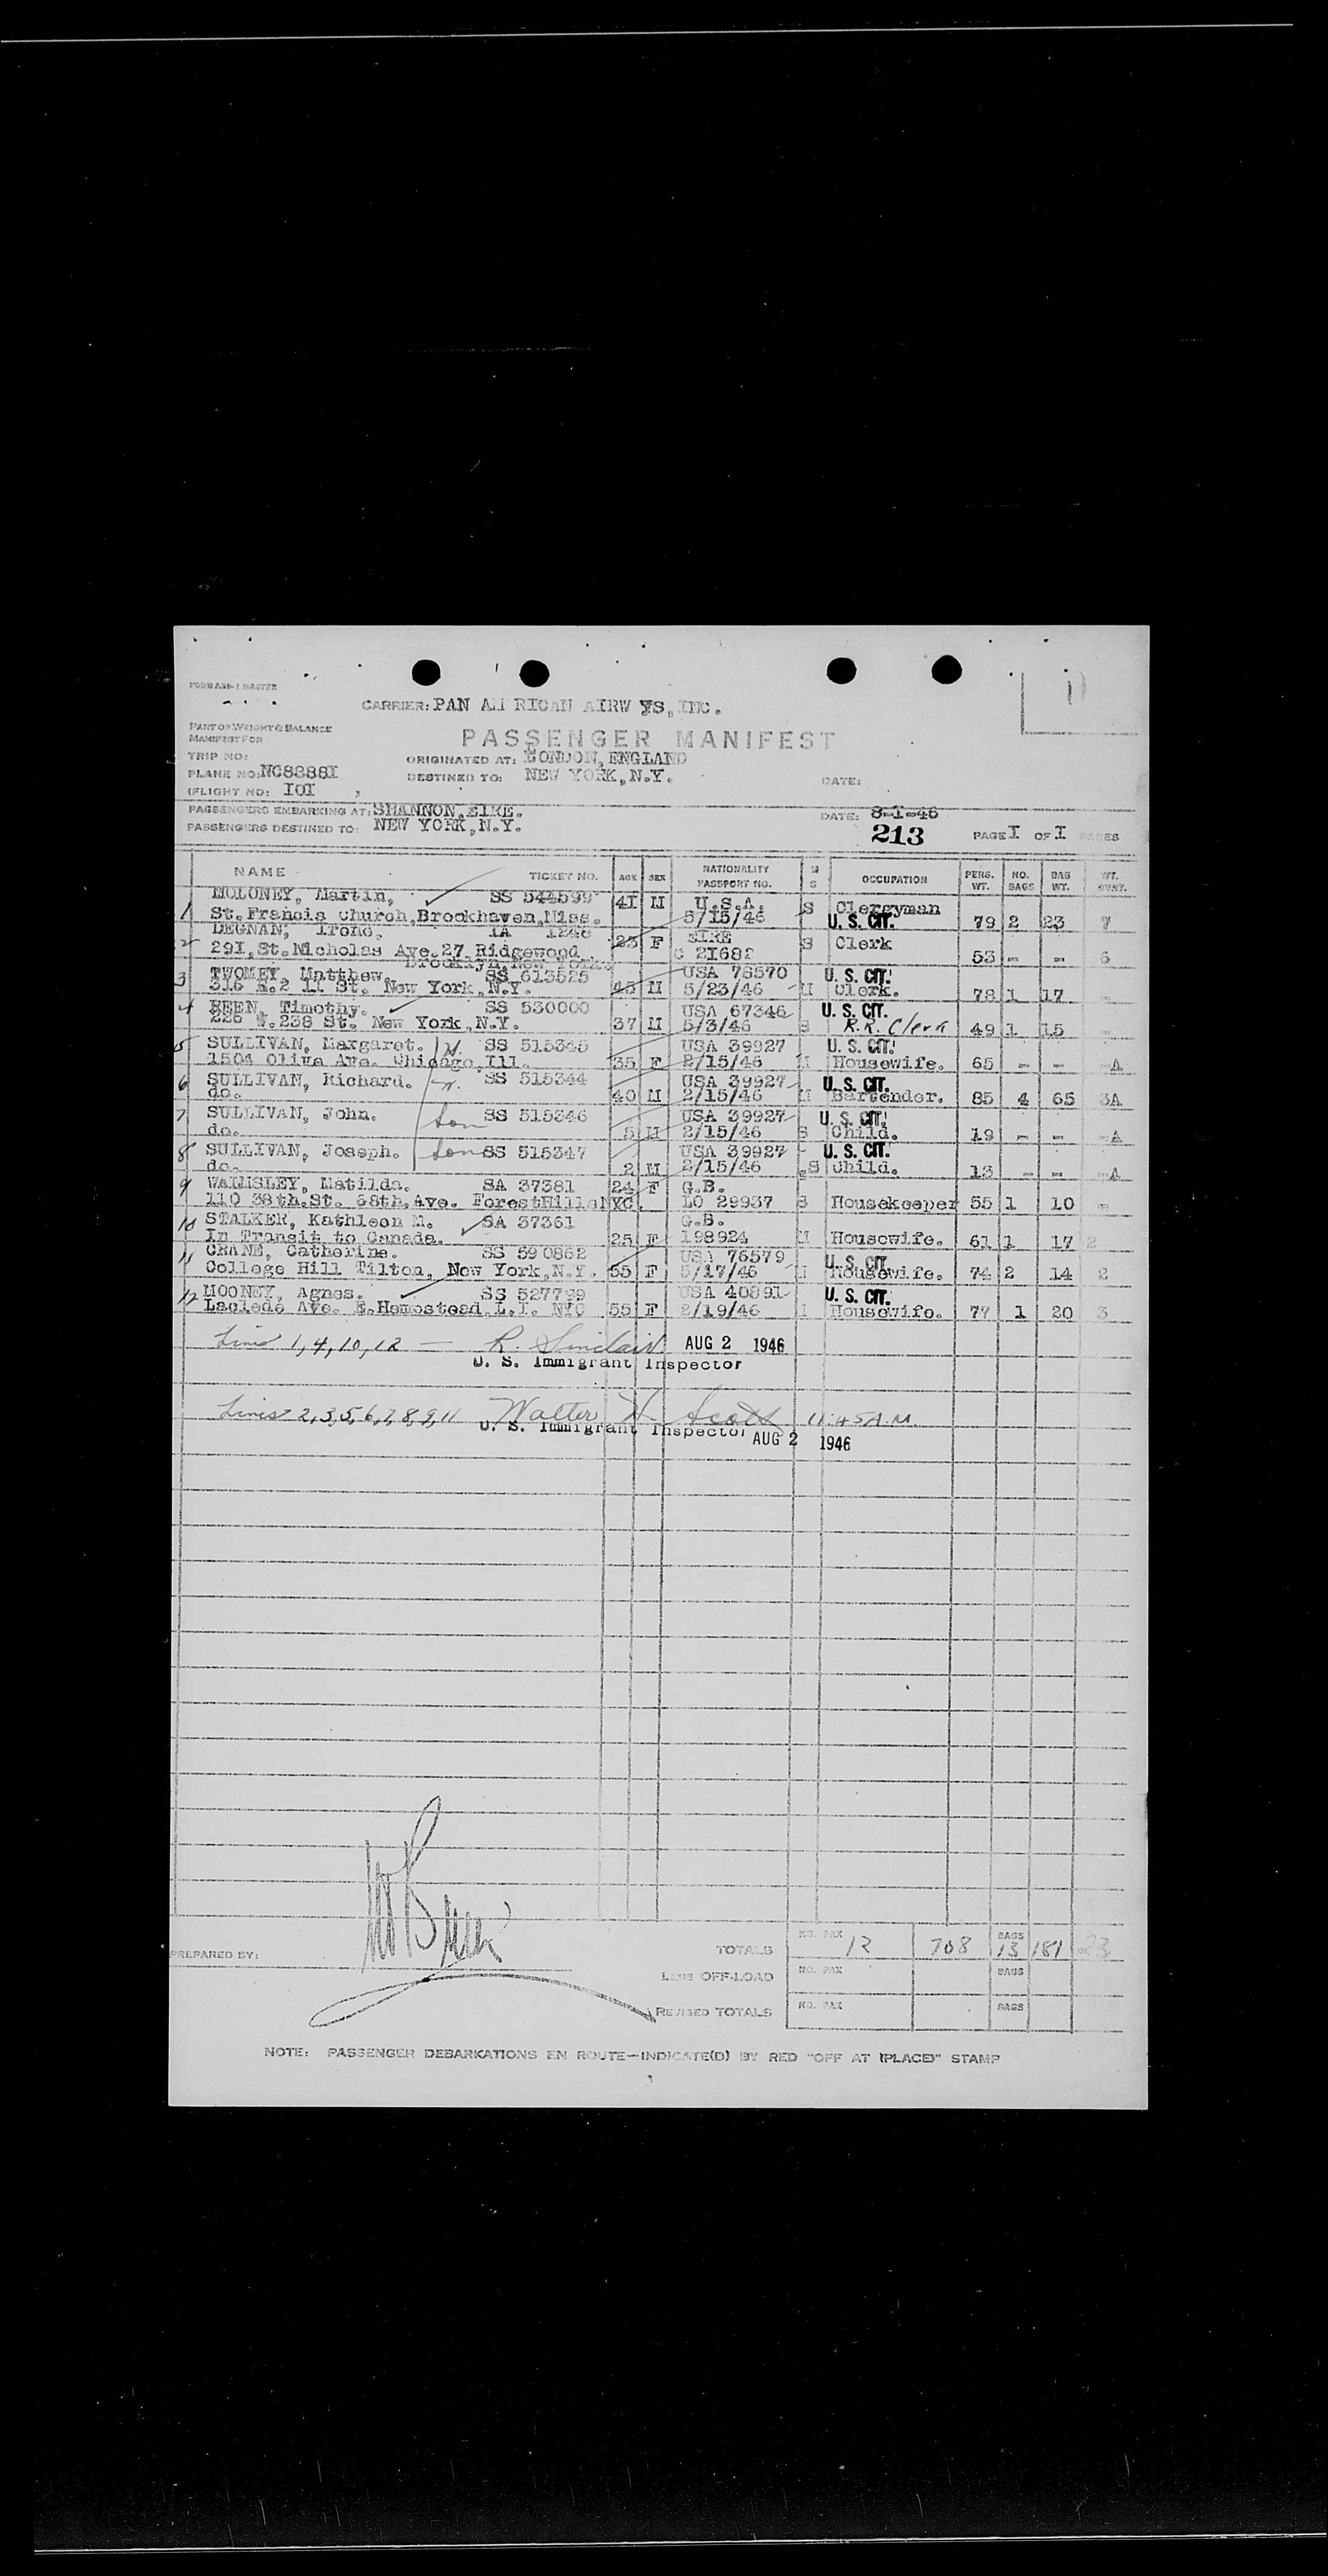 FORM ASS-1 MASTER
CARRIER: PAN AM RICAN AIRW YS, INC.
1
PART OF WEIGHT & BALANCE
MANIFEST FOR
PASSENGER MANIFEST
TRIP NO:
ORIGINATED AT: LONDON, ENGLAND
PLANE NO: NC88881
DESTINED TO: NEW YORK, N.Y.
DATE:
(FLIGHT NO: IOI ,
PASSENGERS EMBARKING AT: SHANNON, EIRE.
DATE: 8-1-46
PASSENGERS DESTINED TO: NEW YORK, N.Y.
213 PAGE I OF I PAGES
NAME TICKET NO. AGE SEX NATIONALITY PASSPORT NO. M S OCCUPATION PERS. WT. NO. BAGS BAG WT. WT.
MOLONEY, Martin, SS 544599 41 M U.S.A. S Clergyman
1 St. Francis church, Brookhaven, Miss. 5/15/46 U. S. CIT. 79 2 23 7
DEGNAN, Irene. IA 1246 23 F EIRE S Clerk
2 291, St. Nicholas Ave. 27 Ridgewood C 21682 53 - - 6
Brooklyn New York.
3 TWOMEY, Matthew. SS 613525 USA 78570 U. S. CIT.
316 E. 2 II St. New York, N.Y. 45 M 5/23/46 M Clerk. 78 1 17 -
4 BEEN, Timothy. SS 530000 USA 67346 U. S. CIT.
226 W. 238 St. New York, N.Y. 37 M 5/3/46 S R.R. Clerk 49 1 15 -
5 SULLIVAN, Margaret. W. SS 515345 USA 39927 U. S. CIT.
1504 Olive Ave. Chicago, Ill. 35 F 2/15/46 M Housewife. 65 - - -A
6 SULLIVAN, Richard. H. SS 515344 USA 39927 U. S. CIT.
do. 40 M 2/15/46 M Bartender. 85 4 65 3A
7 SULLIVAN, John. son SS 515346 USA 39927 U. S. CIT.
do. 5 M 2/15/46 S Child. 19 - - -A
8 SULLIVAN, Joseph. son SS 515347 USA 39927 U. S. CIT.
do. 2 M 2/15/46 S Child. 13 - - -A
9 WALMSLEY, Matilda. SA 37381 24 F G.B.
110 38th. St. 68th. Ave. ForestHills NYC. LO 29937 S Housekeeper 55 1 10 -
10 STALKER, Kathleen M. SA 37361 G.B.
In Transit to Canada. 25 F 198924 M Housewife. 61 1 17 2
11 CRANE, Catherine. SS 590862 USA 76579 U. S. CIT.
College Hill Tilton, New York, N.Y. 55 F 5/17/46 M Housewife. 74 2 14 2
12 MOONEY, Agnes. SS 527799 USA 40891 U. S. CIT.
Laclede Ave. E. Hempstead, L.I. NYC 55 F 2/19/46 M Housewife. 77 1 20 3
Lines 1, 4, 10, 12 — R. Sinclair AUG 2 1946
U. S. Immigrant Inspector
Lines 2, 3, 5, 6, 7, 8, 9, 11 Walter H. Scott 11:45 A.M.
U. S. Immigrant Inspector AUG 2 1946
PREPARED BY:
TOTALS NO. PAX 12 708 BAGS 13 181 23
LESS OFF-LOAD NO. PAX BAGS
REVISED TOTALS NO. PAX BAGS
NOTE: PASSENGER DEBARKATIONS EN ROUTE—INDICATE(D) BY RED "OFF AT (PLACE)" STAMP